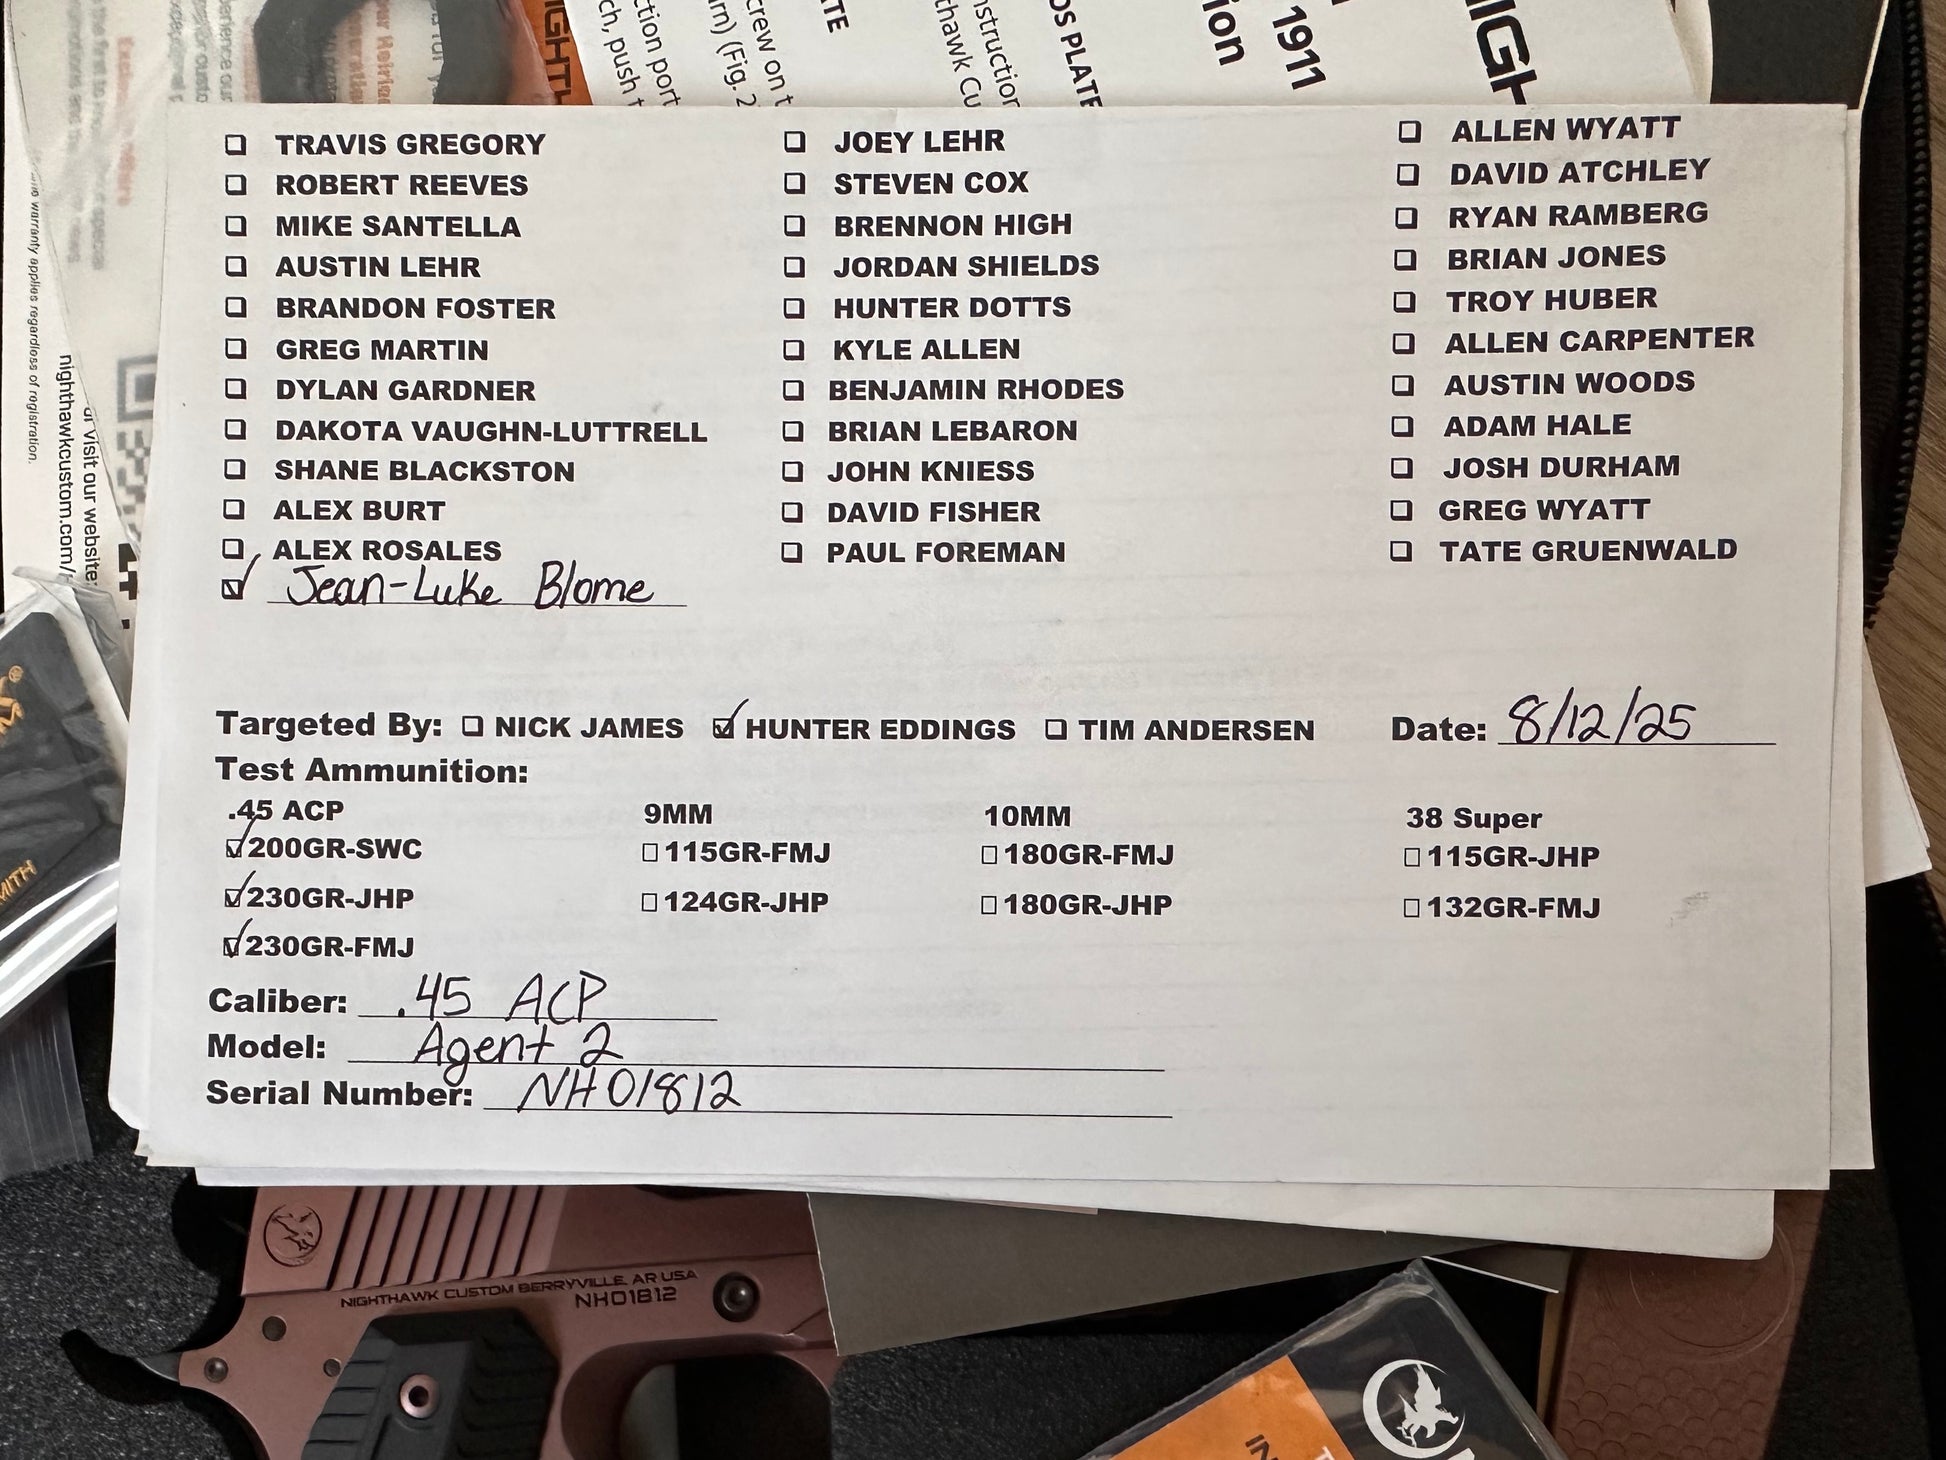 TE
OS PLATE
1911
NIGH
crew on t
rn) (Fig. 2
nstruction
thawk Cu
ction port
ch, push t
NIGHTH
warranty applies regardless of registration.
nighthawkcustom.com/
visit our website:
☐ TRAVIS GREGORY ☐ JOEY LEHR ☐ ALLEN WYATT
☐ ROBERT REEVES ☐ STEVEN COX ☐ DAVID ATCHLEY
☐ MIKE SANTELLA ☐ BRENNON HIGH ☐ RYAN RAMBERG
☐ AUSTIN LEHR ☐ JORDAN SHIELDS ☐ BRIAN JONES
☐ BRANDON FOSTER ☐ HUNTER DOTTS ☐ TROY HUBER
☐ GREG MARTIN ☐ KYLE ALLEN ☐ ALLEN CARPENTER
☐ DYLAN GARDNER ☐ BENJAMIN RHODES ☐ AUSTIN WOODS
☐ DAKOTA VAUGHN-LUTTRELL ☐ BRIAN LEBARON ☐ ADAM HALE
☐ SHANE BLACKSTON ☐ JOHN KNIESS ☐ JOSH DURHAM
☐ ALEX BURT ☐ DAVID FISHER ☐ GREG WYATT
☐ ALEX ROSALES ☐ PAUL FOREMAN ☐ TATE GRUENWALD
☑ Jean-Luke Blome
Targeted By: ☐ NICK JAMES ☑ HUNTER EDDINGS ☐ TIM ANDERSEN Date: 8/12/25
Test Ammunition:
.45 ACP 9MM 10MM 38 Super
☑ 200GR-SWC ☐ 115GR-FMJ ☐ 180GR-FMJ ☐ 115GR-JHP
☑ 230GR-JHP ☐ 124GR-JHP ☐ 180GR-JHP ☐ 132GR-FMJ
☑ 230GR-FMJ
Caliber: .45 ACP
Model: Agent 2
Serial Number: NH01812
NIGHTHAWK CUSTOM BERRYVILLE, AR USA
NH01812